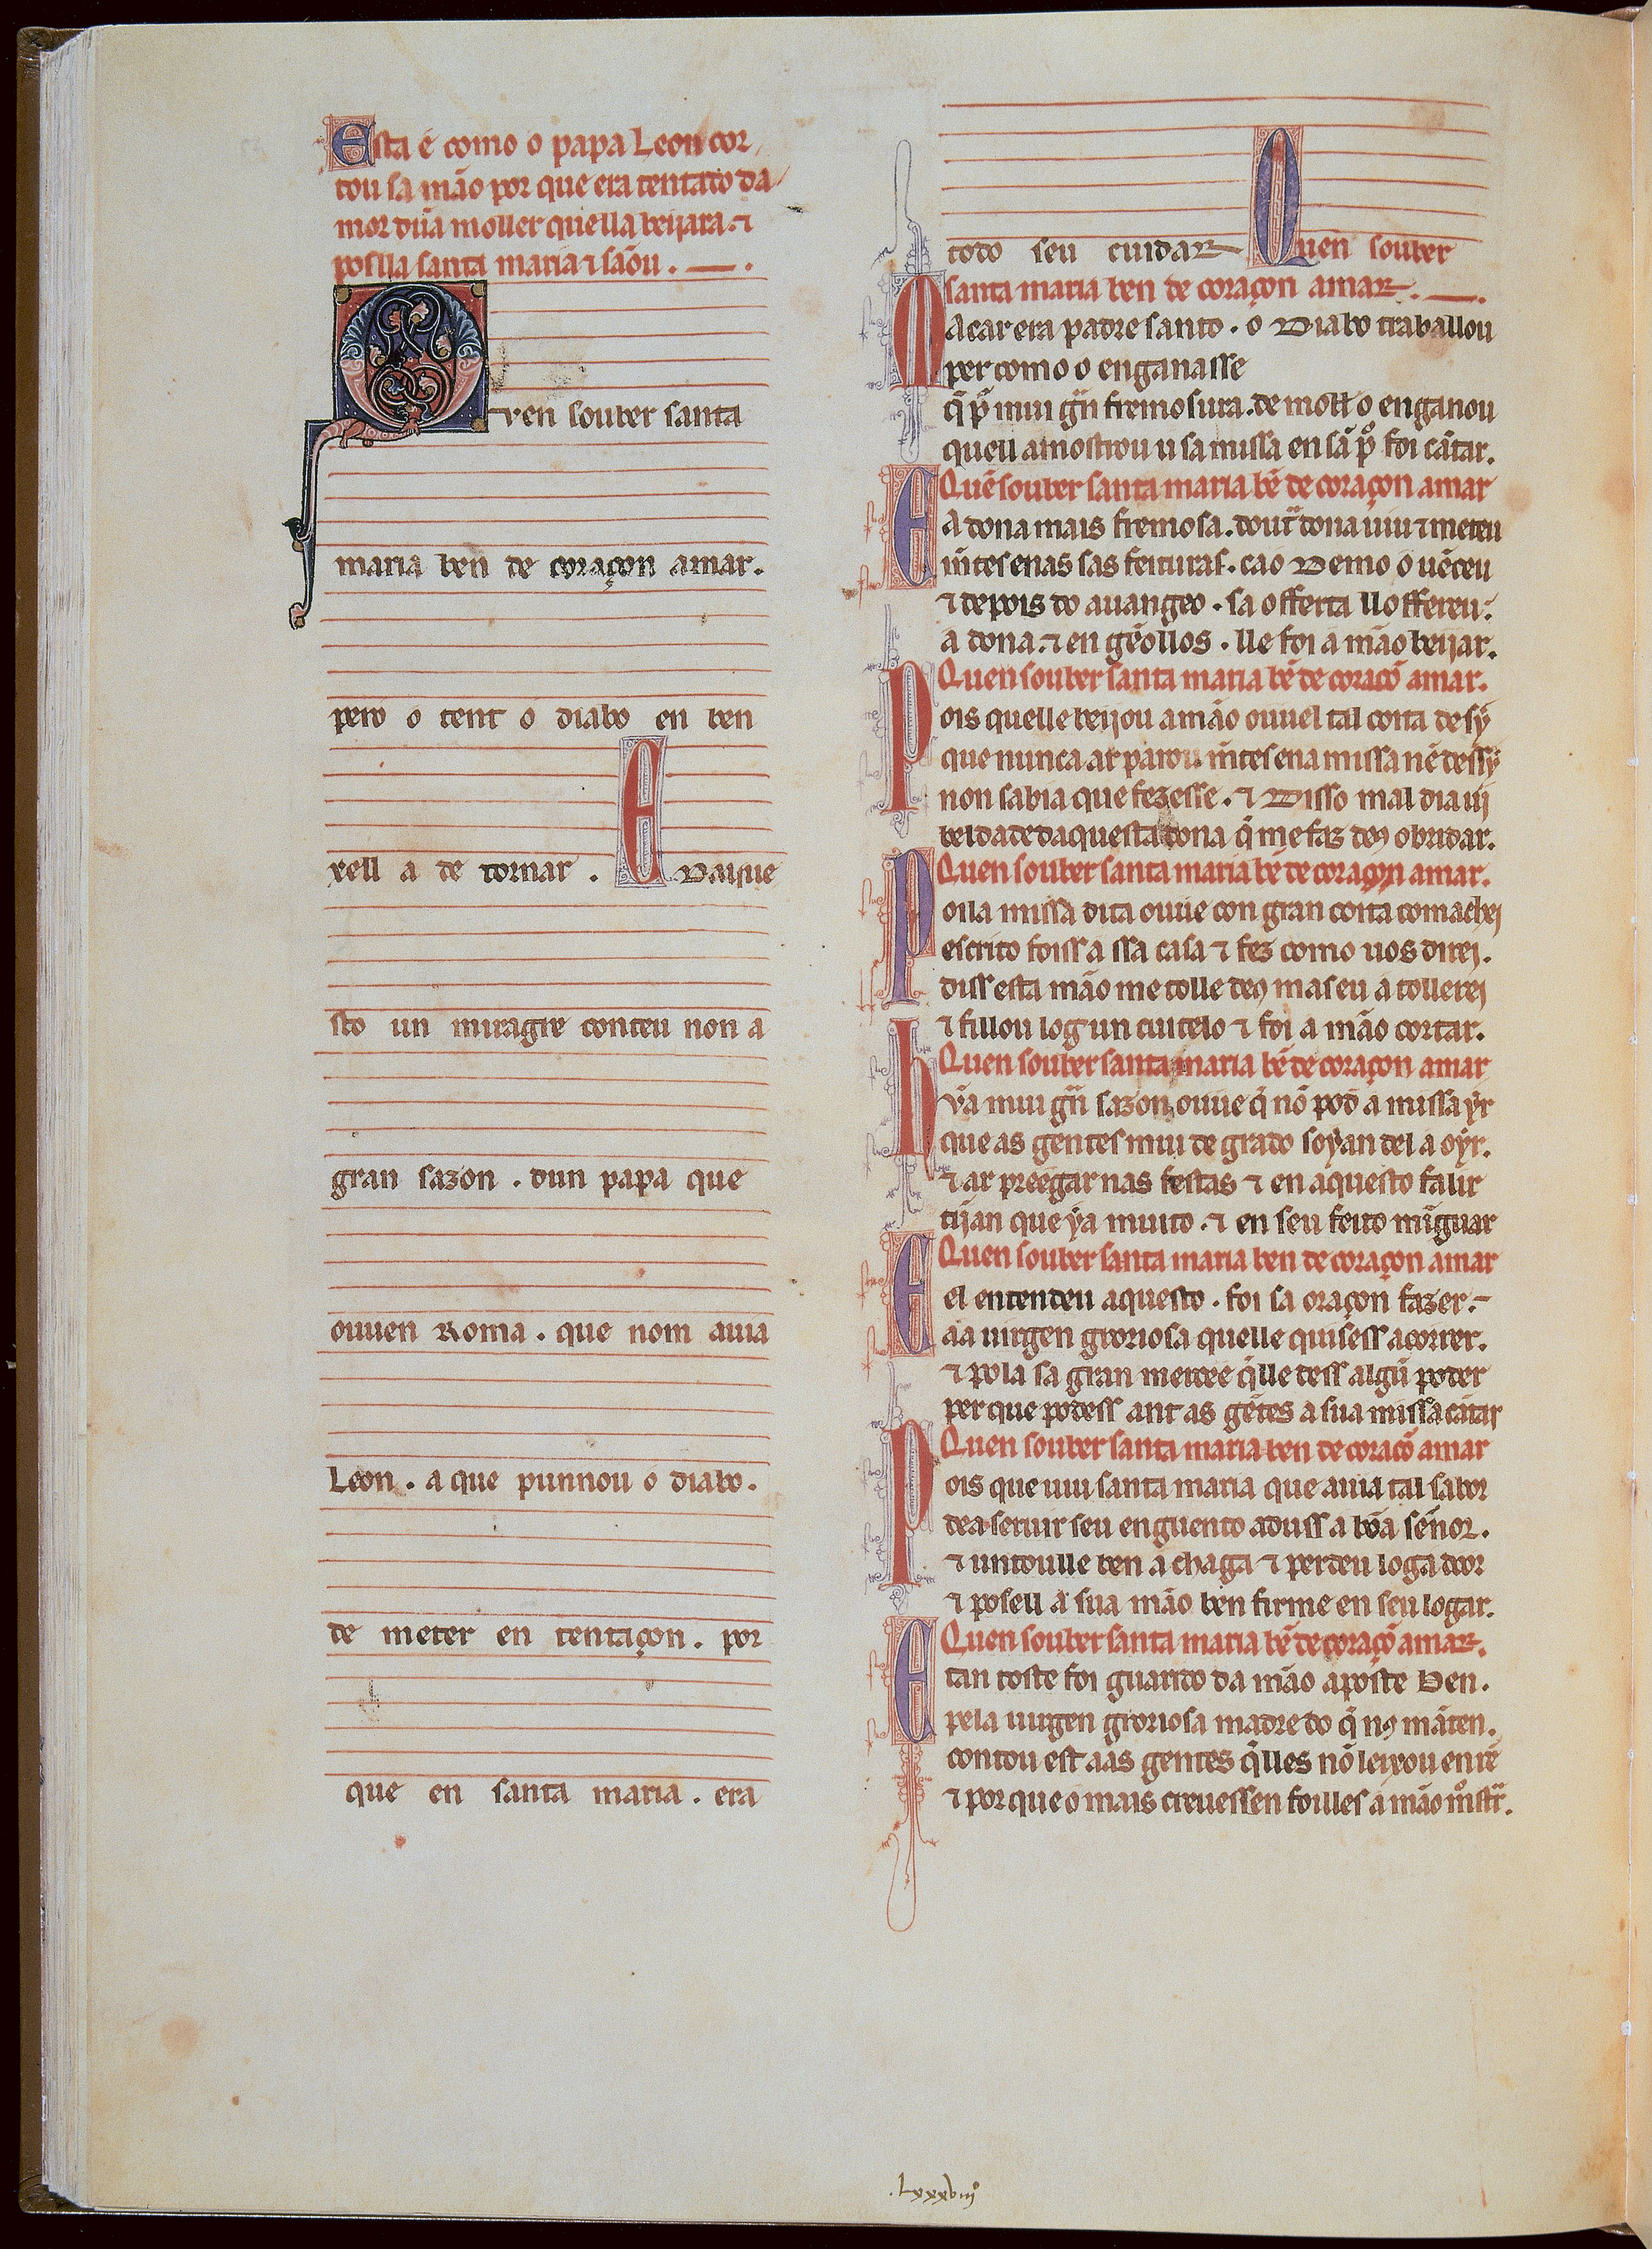 Esta é como o papa Leon cor
tou sa mão por que era tentado da
mor dũa moller quella beijara. ⁊
posslla santa maria ⁊ sãou.
Quen souber santa
maria ben de coraçon amar.
pero o tent o diabo en ben
xell a de tornar. E daque
sto un miragre conteu non a
gran sazon. dun papa que
ouuen Roma. que nom auia
Leon. a que punnou o diabo.
de meter en tentaçon. por
que en santa maria. era
todo seu cuidar Quen souber
santa maria ben de coraçon amar.
Macar era padre santo. o Diabo traballou
per como o enganasse
q̃ p̃ mui grã fremosura. de moll̃ o enganou
quell amostrou u sa missa en sã p̊ foi cãtar.
Quẽ souber santa maria bẽ de coraçon amar
E a dona mais fremosa. doutᵃ dona uiu ⁊ meteu
m̃tes enas sas feituras. cao Demo o uẽceu
⁊ depois do auangeo. sa offerta ll offereu.
a dona. ⁊ en gẽollos. lle foi a mão beijar.
Quen souber santa maria bẽ de coraçõ amar.
Pois quelle beijou a mão ouuel tal coita de sỹ
que nunca ar parou m̃tes ena missa nẽ dessy
non sabia que fezesse. ⁊ Disso mal dia uj
beldade daquesta dona q̃ me faz deꝯ obridar.
Quen souber santa maria bẽ de coraçon amar.
Poila missa dita ouue con gran coita comachej
escrito foiss a ssa casa ⁊ fez como uos direj.
diss esta mão me tolle deꝯ mas eu a tollerej
⁊ fillou log un cuitelo ⁊ foi a mão cortar.
Quen souber santa maria bẽ de coraçon amar
Hũa mui grã sazon, ouue q̃ nõ pod a missa ỹr
que as gentes mui de grado soỹan del a oỹr.
⁊ ar preegar nas festas ⁊ en aquesto falir
tijan que ỹa muito. ⁊ en seu feito mĩguar
Quen souber santa maria ben de coraçon amar
E el entendeu aquesto. foi sa oraçon fazer.
aa uirgen groriosa quelle quisess acorrer.
⁊ pola sa gran mercee q̃lle dess algũ poder
per que podess ant as gẽtes a sua missa cãtar
Quen souber santa maria ben de coraçõ amar
Pois que uiu santa maria que auia tal sabor
dea seruir seu enguento aduss a bõa señor.
⁊ untoulle ben a chaga ⁊ perdeu log a door
⁊ posell a sua mão ben firme en seu logar.
Quen souber santa maria bẽ de coraçõ amar.
E tan toste foi guarido da mão aposte Ben.
pela uirgen groriosa madre do q̃ nꝯ mãten.
contou est aas gentes q̃lles nõ leixou en rẽ
⁊ por que o mais creuessen foilles a mão m̊strᵃr.
.Lxxxviijº